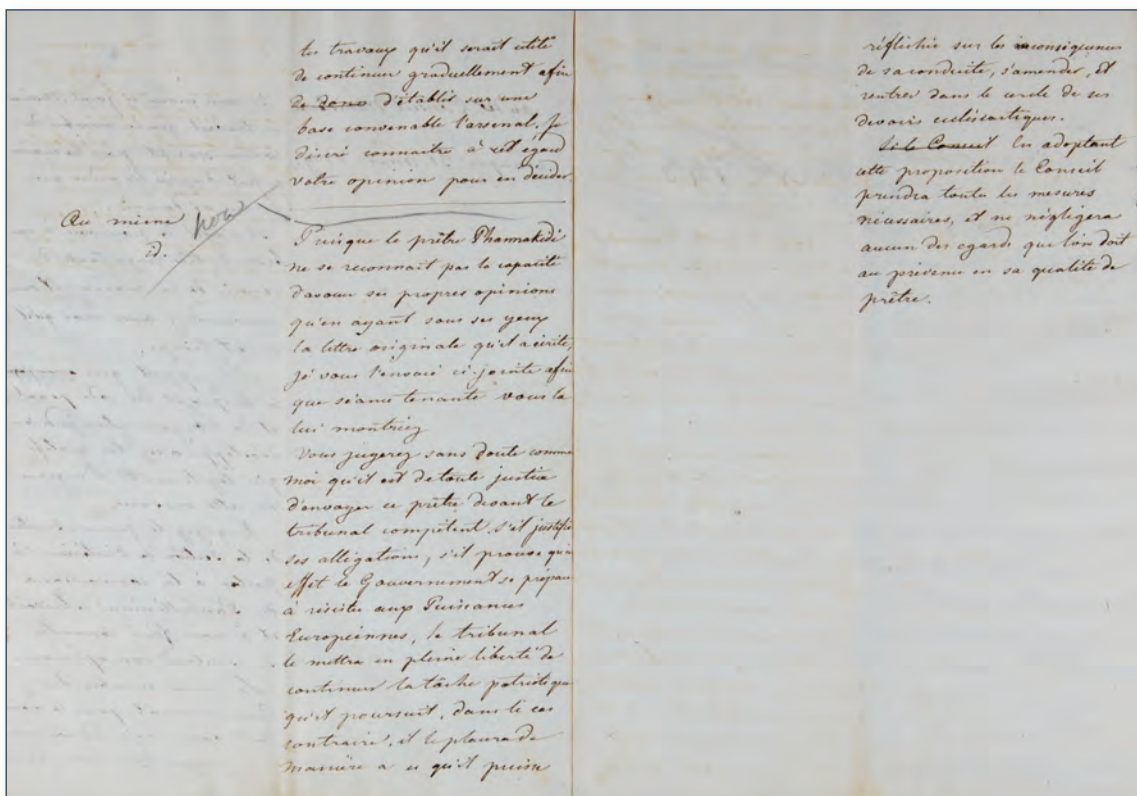 les travaux qu'il serait utile
de continuer graduellement afin
de d'établir sur une
base convenable l'arsenal. Je
désire connaitre à cet egard
votre opinion pour en décider.
Au même
id.
Puisque le prêtre Pharmakidi
ne se reconnait pas la capacité
d'avouer ses propres opinions
qu'en ayant sous ses yeux
la lettre originale qu'il a écrite,
je vous l'envoie ci-jointe afin
que séance tenante vous la
lui montriez
Vous jugerez sans doute comme
moi qu'il est de toute justice
d'envoyer ce prêtre devant le
tribunal compétent. s'il justifie
ses allégations, s'il prouve qu'en
effet le Gouvernement se prépare
à résister aux Puissances
Européennes, le tribunal
le mettra en pleine liberté de
continuer la tâche patriotique
qu'il poursuit, dans le cas
contraire, il le placera de
manière a ce qu'il puisse
réflichir sur les inconsiquences
de sa conduite, s'amender, et
rentrer dans le cercle de ses
devoirs ecclésiastiques.
Si le Conseil En adoptant
cette proposition le Conseil
prendra toutes les mesures
nécessaires, et ne négligera
aucun des egards que l'on doit
au prévenu en sa qualité de
prêtre.